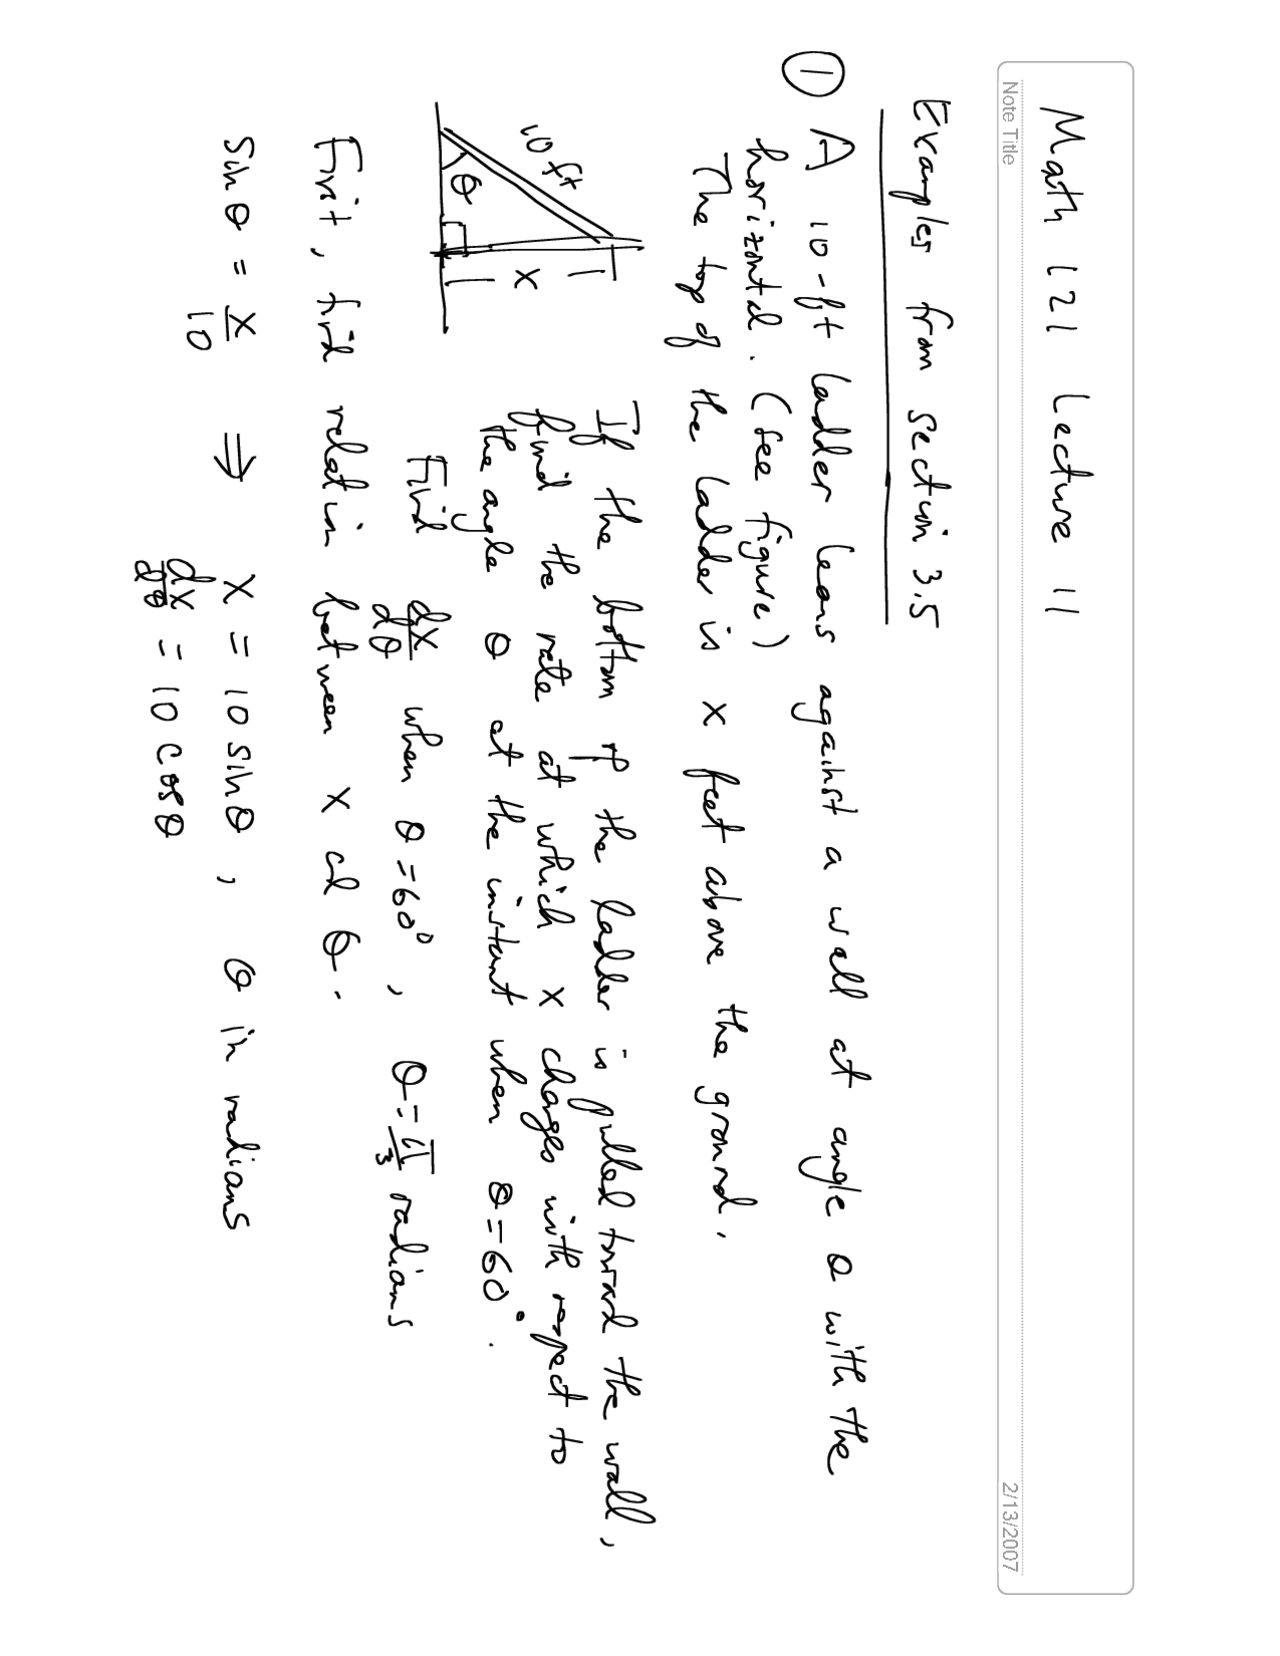 Math 121 Lecture 11
Note Title
2/13/2007
Examples from section 3.5
① A 10-ft ladder leans against a wall at angle θ with the
horizontal. (see figure)
The top of the ladder is x feet above the ground.
10 ft
θ
x
If the bottom of the ladder is pulled toward the wall,
find the rate at which x changes with respect to
the angle θ at the instant when θ=60°.
Find dx/dθ when θ=60°, θ=π/3 radians
First, find relation between x and θ.
sinθ = x/10 ⇒ x = 10 sinθ, θ in radians
dx/dθ = 10 cosθ